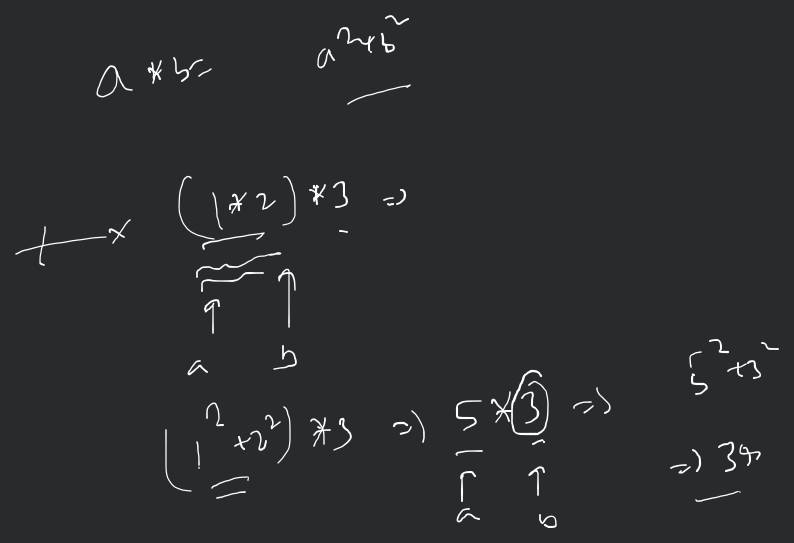 a * b = a² + b²
(1 * 2) * 3 =>
a b
(1² + 2²) * 3 => 5 * 3 => 5² + 3²
a b
=> 34